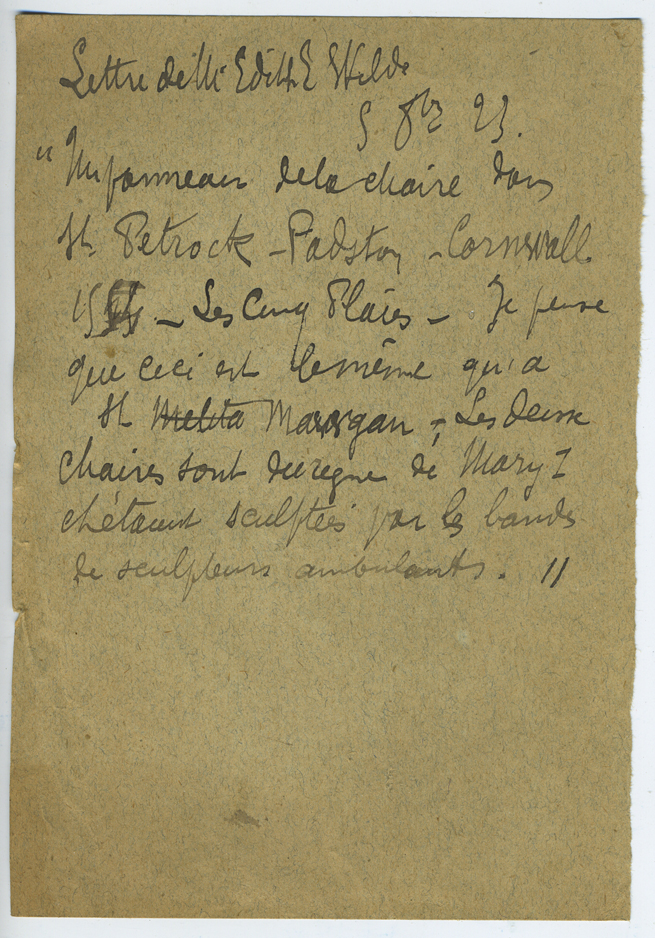 Lettre de Mi Edith E Wilde
5 8bre 23.
"Un panneau de la chaire dans
St. Petrock - Padstow - Cornwall
15 - Les Cinq Plaies - Je pense
que ceci est le même qu'a
St Melita Mawgan - Les deux
chaires sont du regne de Mary I
et étaient sculptées par les bandes
de sculpteurs ambulants. "